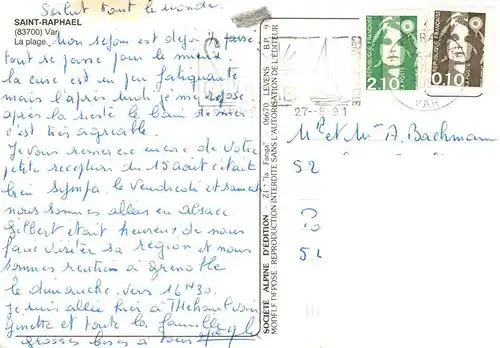 Salut tout le monde.
SAINT-RAPHAEL
(83700) Var
La plage.
Mon séjour est déjà passé
tout se passe pour le mieux
la cure est un peu fatiguante
mais l'après midi je me repose
après la sieste le bain de mer
c'est très agréable.
Je vous remercie encore de votre
petite réception du 15 août c'était
bien sympa. le vendredi et samedi
nous sommes allés en Alsace
Gilbert était heureux de nous
faire visiter sa région et nous
sommes rentrés à Grenoble
le dimanche vers 16 H 30.
Je suis allée hier à Thehoul voir
Ginette et toute la famille
grosses bises à tous
SOCIÉTÉ ALPINE D'ÉDITION - Z.I. "la Fanga" 06670 LEVENS B.F. 9
MODÈLE DÉPOSÉ - REPRODUCTION INTERDITE SANS L'AUTORISATION DE L'ÉDITEUR
27-8 91
VAR
REPUBLIQUE FRANÇAISE
LA POSTE
2,10
REPUBLIQUE FRANÇAISE
LA POSTE
0,10
Mr et Mme A. Bachmann
52
51